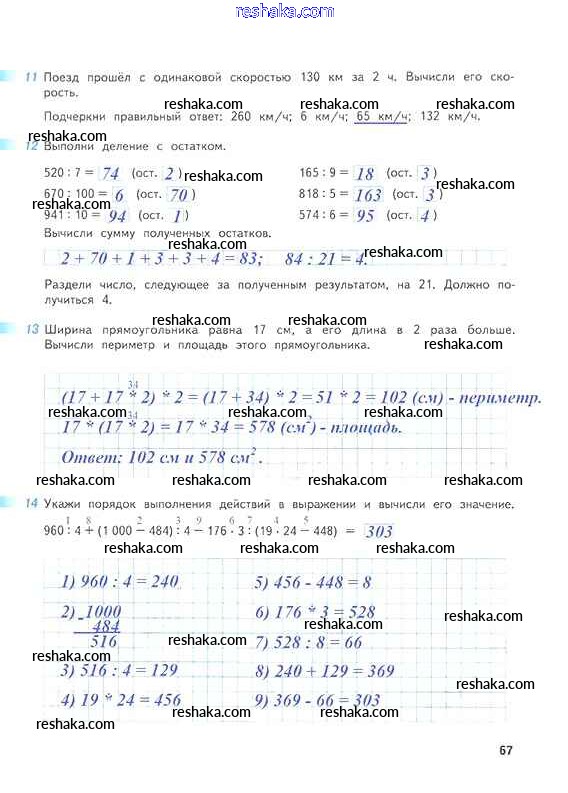 reshaka.com
11 Поезд прошёл с одинаковой скоростью 130 км за 2 ч. Вычисли его ско-
рость.
reshaka.com reshaka.com
Подчеркни правильный ответ: 260 км/ч; 6 км/ч; 65 км/ч; 132 км/ч.
reshaka.com
12 Выполни деление с остатком.
520 : 7 = 74 (ост. 2) 165 : 9 = 18 (ост. 3)
reshaka.com reshaka.com
670 : 100 = 6 (ост. 70) 818 : 5 = 163 (ост. 3)
reshaka.com reshaka.com
941 : 10 = 94 (ост. 1) 574 : 6 = 95 (ост. 4)
Вычисли сумму полученных остатков.
reshaka.com reshaka.com
2 + 70 + 1 + 3 + 3 + 4 = 83; 84 : 21 = 4.
Раздели число, следующее за полученным результатом, на 21. Должно по-
лучиться 4.
reshaka.com reshaka.com
13 Ширина прямоугольника равна 17 см, а его длина в 2 раза больше.
Вычисли периметр и площадь этого прямоугольника.
reshaka.com
34
(17 + 17 * 2) * 2 = (17 + 34) * 2 = 51 * 2 = 102 (см) - периметр.
reshaka.com reshaka.com reshaka.com
34
17 * (17 * 2) = 17 * 34 = 578 (см²) - площадь.
Ответ: 102 см и 578 см².
reshaka.com reshaka.com reshaka.com
14 Укажи порядок выполнения действий в выражении и вычисли его значение.
1 8 2 3 9 6 7 4 5
960 : 4 + (1 000 − 484) : 4 − 176 · 3 : (19 · 24 − 448) = 303
reshaka.com reshaka.com
1) 960 : 4 = 240 5) 456 - 448 = 8
reshaka.com reshaka.com
2) - 1000 6) 176 * 3 = 528
484
reshaka.com
516 7) 528 : 8 = 66
reshaka.com reshaka.com
3) 516 : 4 = 129 8) 240 + 129 = 369
reshaka.com
4) 19 * 24 = 456 9) 369 - 66 = 303
reshaka.com reshaka.com reshaka.com
67